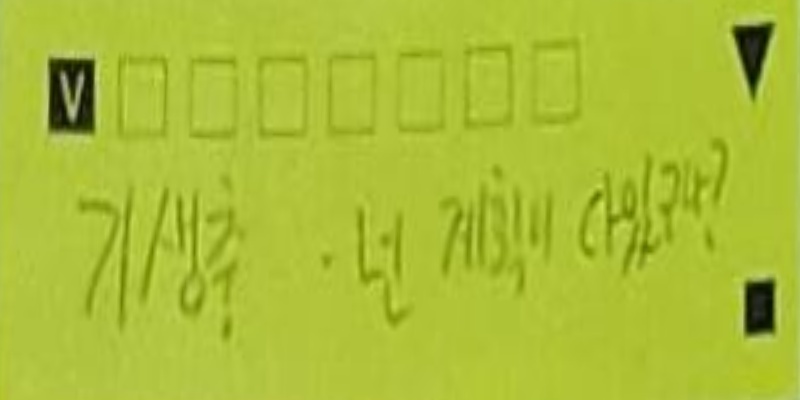 V
기생충 · 넌 계획이 다 있구나?